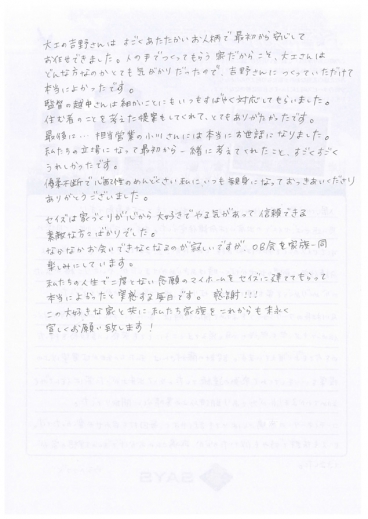 大工の吉野さんは すごくあたたかいお人柄で最初から安心して
お任せできました。人の手でつくってもらう家だからこそ、大工さんは
どんな方なのかとても気がかりだったので、吉野さんに つくっていただけて
本当によかったです。
監督の越中さんは細かいことにもいつもすばやく対応してもらいました。
住む者のことを考えた提案もしてくれて、とてもありがたかったです。
最後に… 担当営業の小川さんには本当にお世話になりました。
私たちの立場になって最初から一緒に考えてくれたこと、すごくすごく
うれしかったです。
優柔不断で心配性のめんどくさい私に、いつも親身になっておつきあいくださり
ありがとうございました。
セイズは家づくりが心から大好きでやる気があって 信頼できる
素敵な方ばかりでした。
なかなかお会いできなくなるのが寂しいですが、OB会を家族一同
楽しみにしています。
私たちの人生で二度とない念願のマイホームをセイズに建ててもらって
本当によかったと実感する毎日です。 感謝!!!
この大好きな家と共に 私たち家族をこれからも末永く
宜しくお願い致します!
SAYS